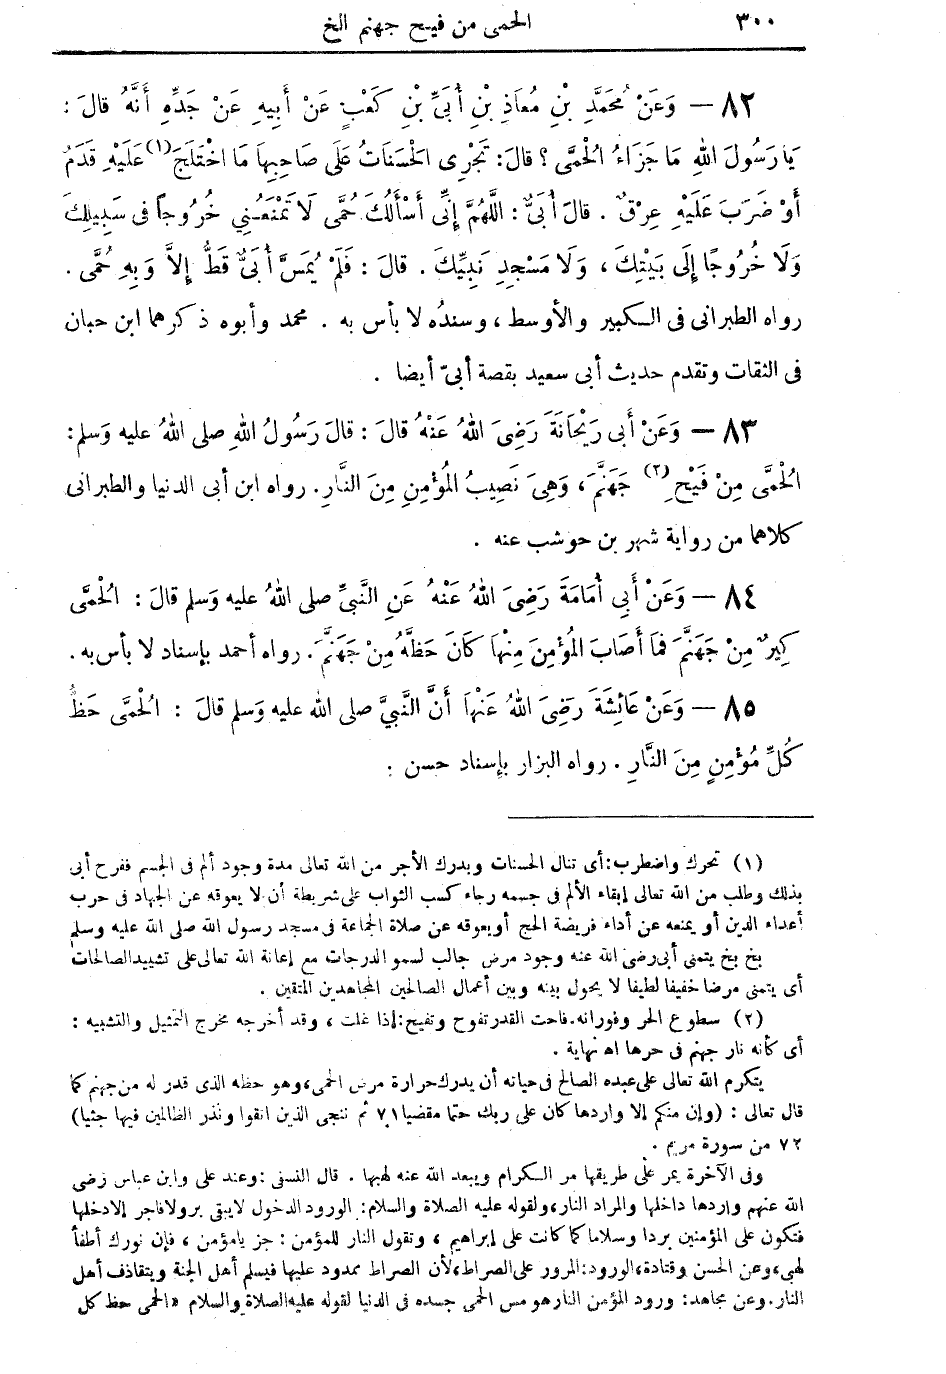 ٣٠٠ الحمى من فيح جهنم الخ
٨٢ — وَعَنْ مُحَمَّدِ بْنِ مُعَاذِ بْنِ أُبَيِّ بْنِ كَعْبٍ عَنْ أَبِيهِ عَنْ جَدِّهِ أَنَّهُ قالَ :
يَارَسُولَ اللهِ مَا جَزَاءُ الْحُمَّى ؟ قالَ: تَجْرِى الْحَسَنَاتُ عَلَى صَاحِبِهَا مَا اخْتَلَجَ (١) عَلَيْهِ قَدَمٌ
أَوْ ضَرَبَ عَلَيْهِ عِرْقٌ . قالَ أُبَىٌّ : اللَّهُمَّ إِنِّى أَسْأَلُكَ حُمَّى لَا تَمْنَعُنِي خُرُوجاً فى سَبِيلِكَ
وَلَا خُرُوجًا إِلَى بَيْتِكَ ، وَلَا مَسْجِدِ نَبِيِّكَ . قالَ : فَلَمْ يُمَسَّ أُبَىٌّ قَطُّ إِلاَّ وَبِهِ حُمَّى .
رواه الطبرانى فى الكبير والأوسط ، وسنده لا بأس به . محمد وأبوه ذكرهما ابن حبان
فى الثقات وتقدم حديث أبى سعيد بقصة أبىّ أيضا .
٨٣ — وَعَنْ أَبى رَيْحَانَةَ رَضِىَ اللهُ عَنْهُ قالَ : قالَ رَسُولُ اللهِ صلى اللهُ عليه وَسلم :
الْحُمَّى مِنْ فَيْحِ (٢) جَهَنَّمَ ، وَهِىَ نَصِيبُ الْمُؤْمِنِ مِنَ النَّارِ . رواه ابن أبى الدنيا والطبرانى
كلاهما من رواية شهر بن حوشب عنه .
٨٤ — وَعَنْ أَبِي أُمَامَةَ رَضِىَ اللهُ عَنْهُ عَنِ النَّبِيِّ صلى اللهُ عليه وَسلم قالَ : الْحُمَّى
كِيرٌ مِنْ جَهَنَّمَ فَمَا أَصَابَ الْمُؤْمِنَ مِنْهَا كَانَ حَظَّهُ مِنْ جَهَنَّمَ . رواه أحمد بإسناد لا بأس به .
٨٥ — وَعَنْ عَائِشَةَ رَضِىَ اللهُ عَنْهَا أَنَّ النَّبِيَّ صلى الله عليه وَسلم قالَ : الْحُمَّى حَظُّ
كُلِّ مُؤْمِنٍ مِنَ النَّارِ . رواه البزار بإسناد حسن :
(١) تحرك واضطرب: أى تنال الحسنات ويدرك الأجر من الله تعالى مدة وجود ألم فى الجسم ففرح أبى
بذلك وطلب من الله تعالى إبقاء الألم فى جسمه رجاء كسب الثواب على شريطة أن لا يعوقه عن الجهاد فى حرب
أعداء الدين أو يمنعه عن أداء فريضة الحج أو يعوقه عن صلاة الجماعة فى مسجد رسول الله صلى الله عليه وسلم
بخ بخ يتمنى أبى رضى الله عنه وجود مرض جالب لسمو الدرجات مع إعانة الله تعالى على تشييد الصالحات
أى يتمنى مرضا خفيفا لطيفا لا يحول بينه وبين أعمال الصالحين المجاهدين المتقين .
(٢) سطوع الحر وفورانه. فاحت القدر تفوح وتفيح: إذا غلت ، وقد أخرجه مخرج التمثيل والتشبيه :
أى كأنه نار جهنم فى حرها اه نهاية .
يتكرم الله تعالى على عبده الصالح فى حياته أن يدرك حرارة مرض الحمى، وهو حظه الذى قدر له من جهنم كما
قال تعالى : (وإن منكم إلا واردها كان على ربك حتما مقضيا ٧١ ثم ننجى الذين اتقوا ونذر الظالمين فيها جثيا)
٧٢ من سورة مريم .
وفى الآخرة يمر على طريقها مر الكرام ويبعد الله عنه لهبها . قال النسفى : وعند على وابن عباس رضى
الله عنهم واردها داخلها والمراد النار، ولقوله عليه الصلاة والسلام: الورود الدخول لا يبقى بر ولا فاجر إلا دخلها
فتكون على المؤمنين بردا وسلاما كما كانت على إبراهيم ، وتقول النار للمؤمن : جز يامؤمن ، فإن نورك أطفأ
لهبى، وعن الحسن وقتادة، الورود: المرور على الصراط، لأن الصراط ممدود عليها فيسلم أهل الجنة ويتقاذف أهل
النار. وعن مجاهد: ورود المؤمن النار هو مس الحمى جسده فى الدنيا لقوله عليه الصلاة والسلام «الحمى حظ كل